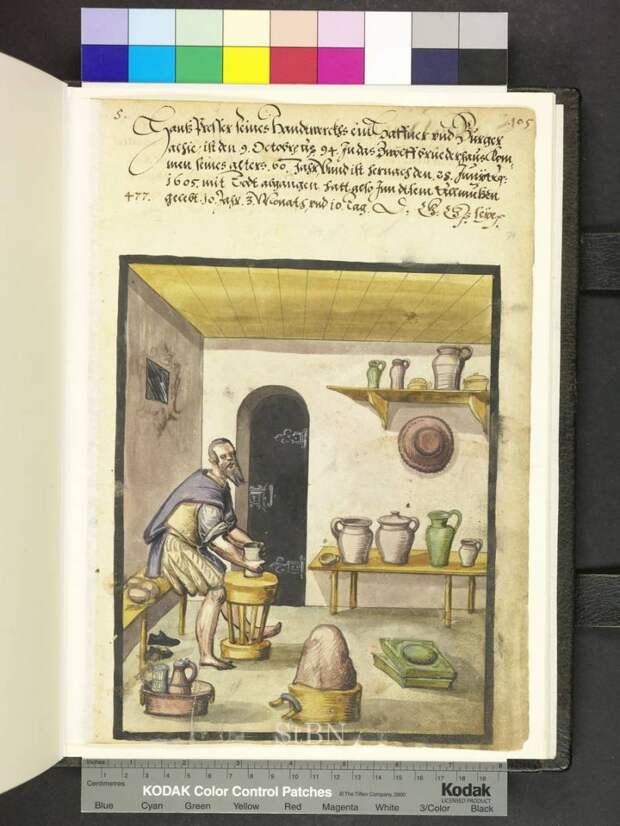 5.
105
Hanß Presser seines Handtwerckhs ein Haffner und Burger
alhie, ist den 9. Octobriß 94. In das Zwelffbrüederhaus kom,
men seines alters. 60. Jahr. Vund ist hernach den 28. Januarÿ:
1605. mit Todt abgangen, hatt also Inn disem
477.
gelebt. 10. Jahr. 3. Monath und 10. Tag. D. G. G.
St BN
Inches 1 2 3 4 5 6 7 8
Centimetres 1 2 3 4 5 6 7 8 9 10 11 12 13 14 15 16 17 18 19
KODAK Color Control Patches © The Tiffen Company, 2000 Kodak
LICENSED PRODUCT
Blue Cyan Green Yellow Red Magenta White 3/Color Black